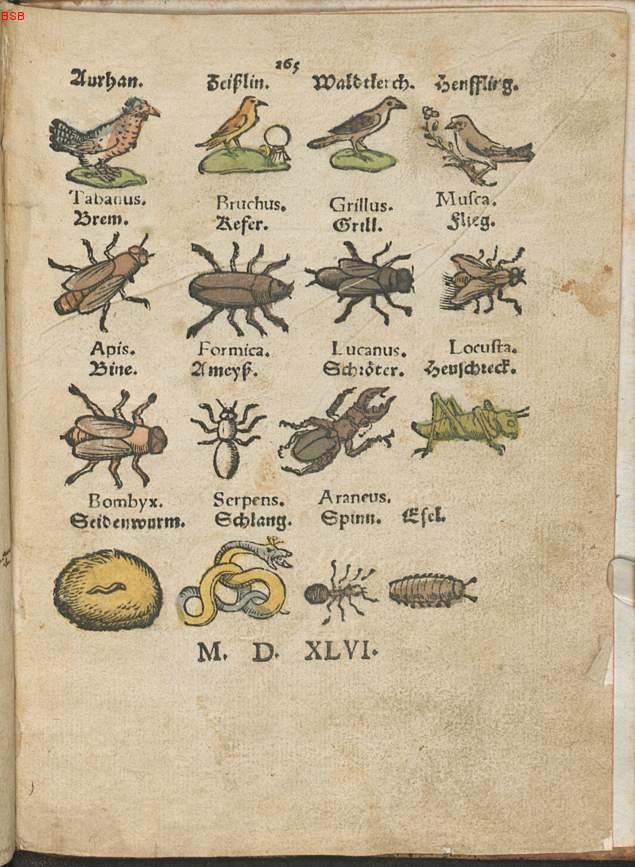 BSB
265
Aurhan. Zeißlin. Waldtlerch. Henffling.
Tabanus. Bruchus. Grillus. Musca.
Brem. Kefer. Grill. Flieg.
Apis. Formica. Lucanus. Locusta.
Bine. Ameyß. Schröter. Hewschreck.
Bombyx. Serpens. Araneus.
Seidenwurm. Schlang. Spinn. Esel.
M. D. XLVI.